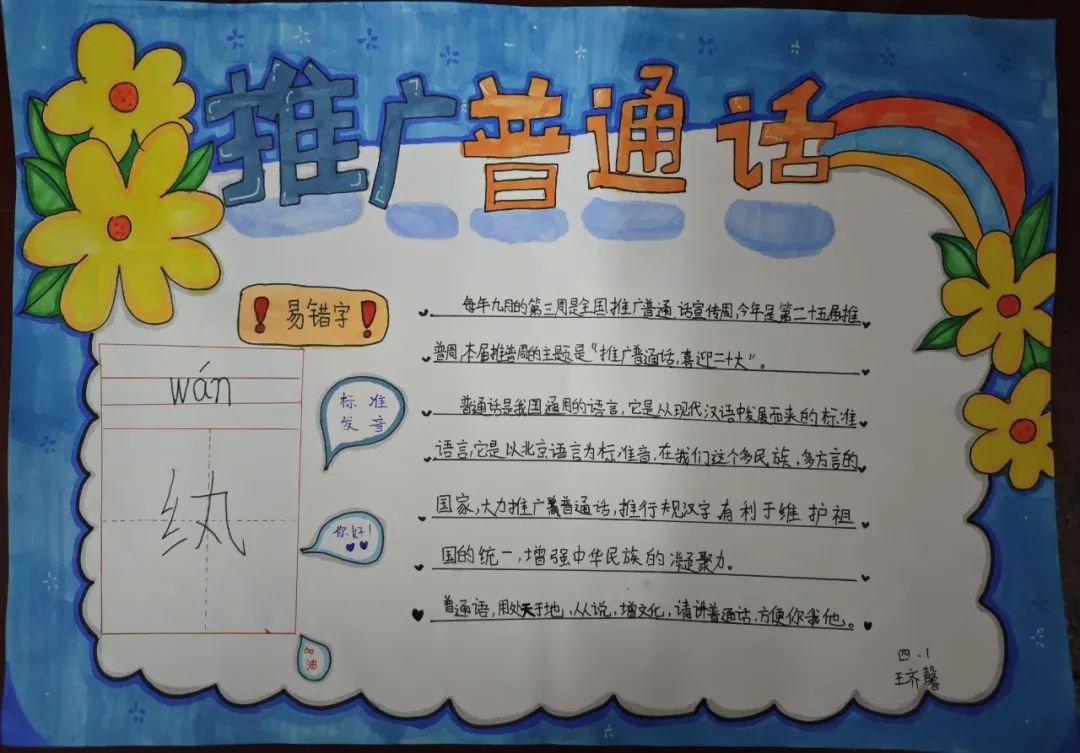 推广普通话
易错字
wán
纨
标准
发音
你好!
加
油
每年九月的第三周是全国推广普通话宣传周,今年是第二十五届推
普周,本届推普周的主题是“推广普通话,喜迎二十大”。
普通话是我国通用的语言,它是从现代汉语中发展而来的标准
语言,它是以北京语言为标准音,在我们这个多民族、多方言的
国家,大力推广普通话,推行规汉字有利于维护祖
国的统一,增强中华民族的凝聚力。
普通语,用处于地,从说,增文化,请讲普通话,方便你我他。
四.1
王齐馨